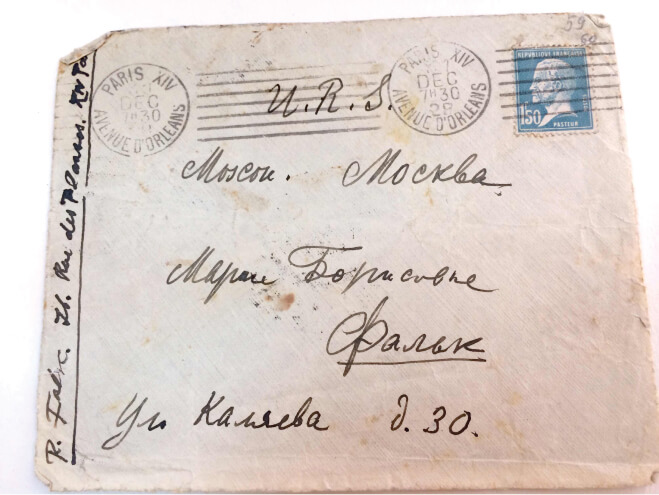 59
PARIS XIV
DEC
7H30
28
AVENUE D'ORLEANS
PARIS XIV
DEC
7H30
28
AVENUE D'ORLEANS
REPUBLIQUE FRANÇAISE
1F50
PASTEUR
U.R.S.
Moscou. Москва
Марии Борисовне
Фальк
Ул Каляева д. 30.
R. Rue des